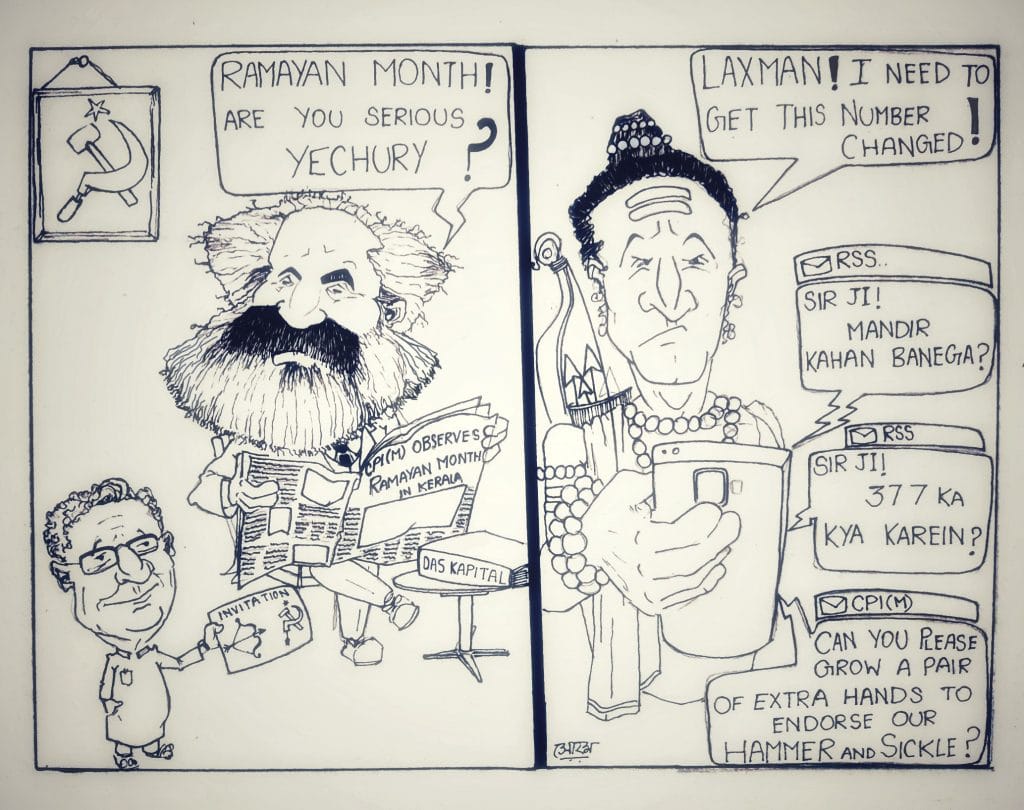 RAMAYAN MONTH!
ARE YOU SERIOUS
YECHURY ?
CPI(M) OBSERVES
RAMAYAN MONTH
IN KERALA
DAS KAPITAL
INVITATION
LAXMAN! I NEED TO
GET THIS NUMBER
CHANGED!
RSS..
SIR JI!
MANDIR
KAHAN BANEGA?
RSS
SIR JI!
377 KA
KYA KAREIN?
CPI(M)
CAN YOU PLEASE
GROW A PAIR
OF EXTRA HANDS TO
ENDORSE OUR
HAMMER AND SICKLE?